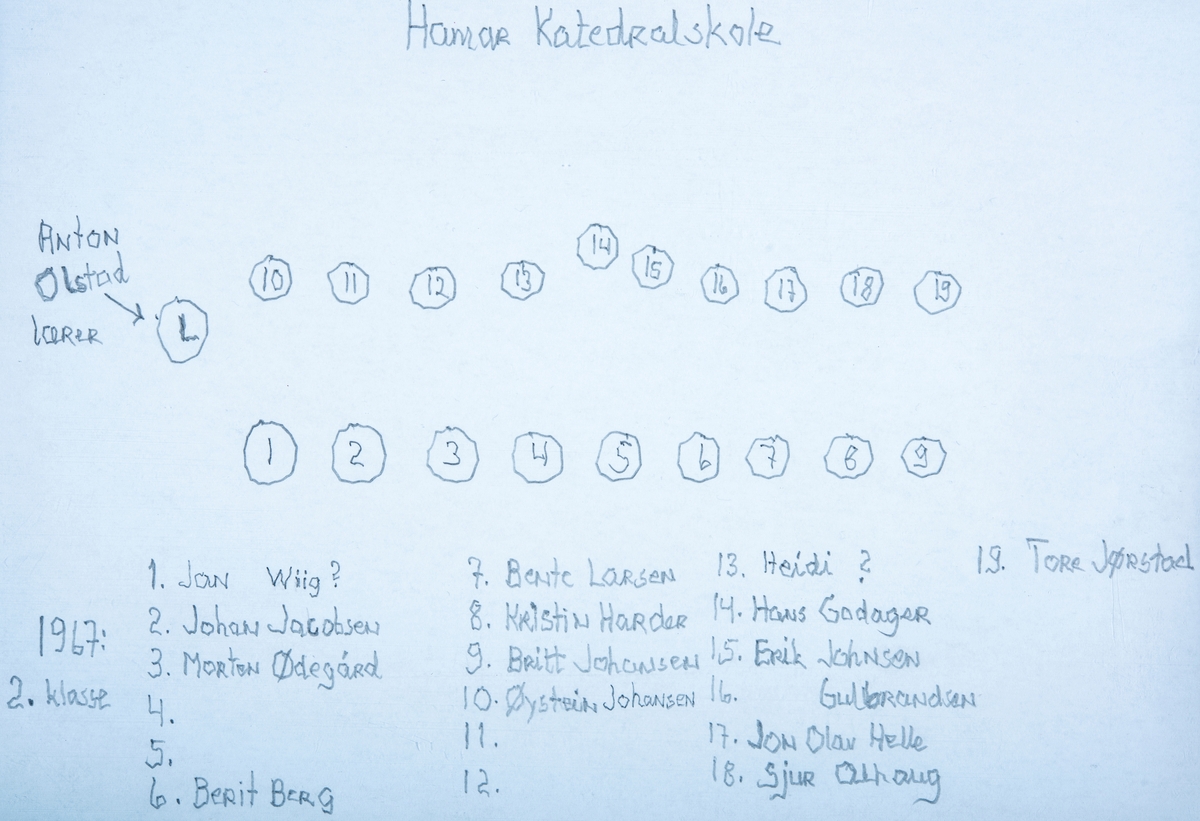 Hamar Katedralskole
Anton
Olstad
lærer
L
10 11 12 13 14 15 16 17 18 19
1 2 3 4 5 6 7 8 9
1967:
2. klasse
1. Jan Wiig?
2. Johan Jacobsen
3. Morten Ødegård
4.
5.
6. Berit Berg
7. Bente Larsen
8. Kristin Harder
9. Britt Johansen
10. Øystein Johansen
11.
12.
13. Heidi ?
14. Hans Godager
15. Erik Johnsen
16. Gulbrandsen
17. Jon Olav Helle
18. Sjur
19. Tore Jørstad